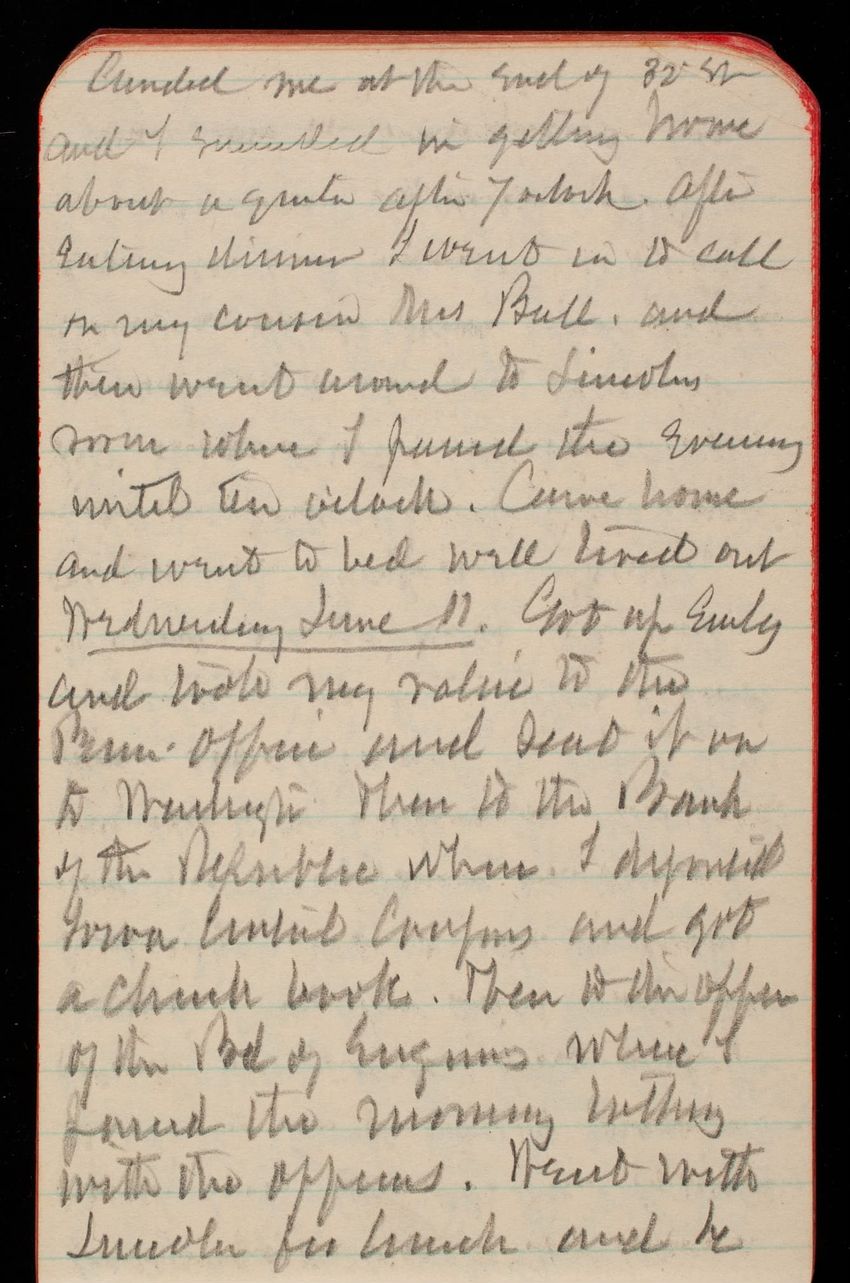 landed me at the End of 32 St
and I succeeded in getting home
about a quarter after 7 oclock. After
Eating dinner I went in to call
on my cousin Mrs Bull. and
then went around to Lincolns
room where I passed the Evening
until ten oclock. Came home
and went to bed well tired out
Wednesday June 11. Got up Early
and took my valise to the
Penn. Office and sent it on
to Then to the Bank
of the Republic where I deposited
Iowa Central Coupons and got
a check book. Then to the office
of the Bd of Engineers where I
passed the morning talking
with the officers. Went with
Lincoln for lunch and he